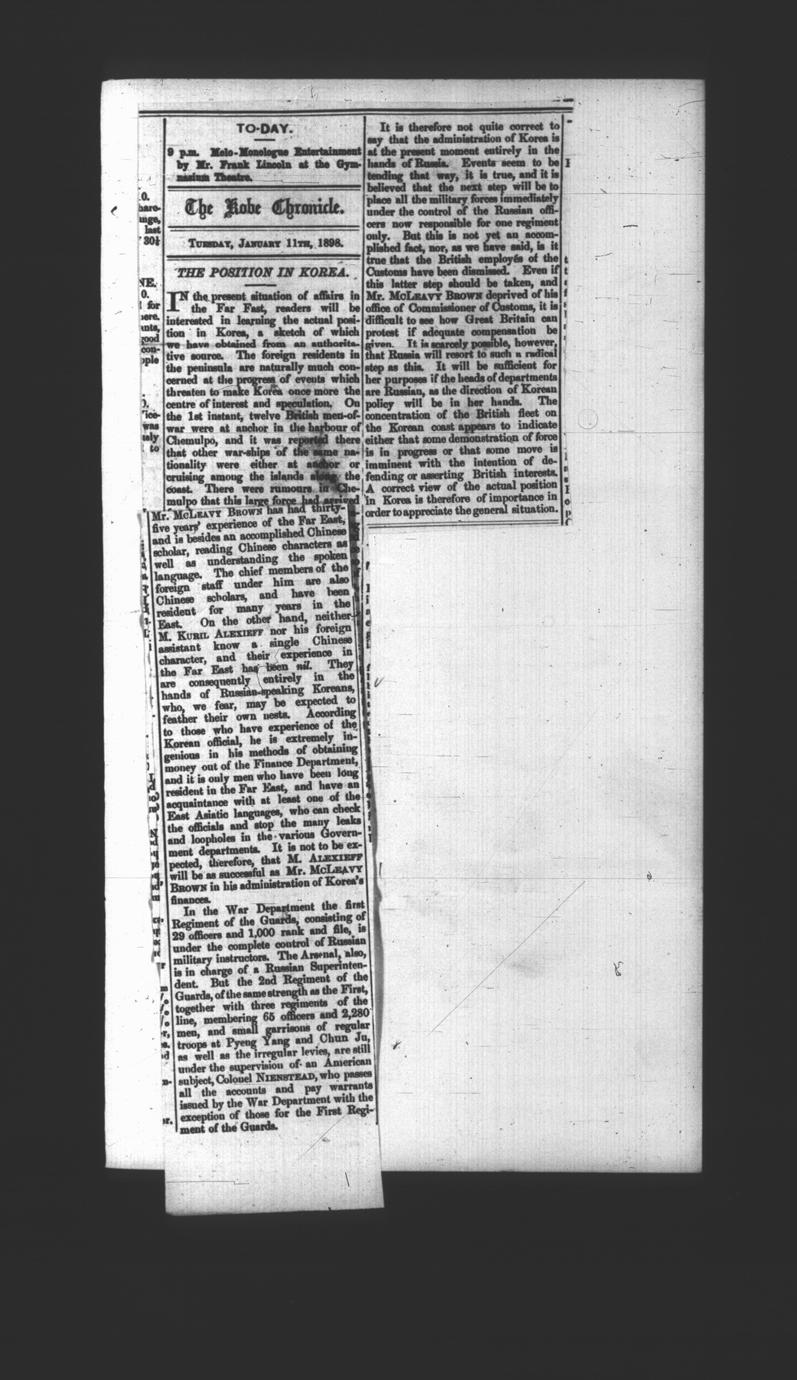 TO-DAY.
9 p.m. Melo-Monologue Entertainment
by Mr. Frank Lincoln at the Gym-
nasium Theatre.
The Kobe Chronicle.
TUESDAY, JANUARY 11TH, 1898.
THE POSITION IN KOREA.
IN the present situation of affairs in
the Far East, readers will be
interested in learning the actual posi-
tion in Korea, a sketch of which
we have obtained from an authorita-
tive source. The foreign residents in
the peninsula are naturally much con-
cerned at the progress of events which
threaten to make Korea once more the
centre of interest and speculation. On
the 1st instant, twelve British men-of-
war were at anchor in the harbour of
Chemulpo, and it was reported there
that other war-ships of the same na-
tionality were either at anchor or
cruising among the islands along the
coast. There were rumours in Che-
mulpo that this large force had arrived
Mr. MCLEAVY BROWN has had thirty-
five years' experience of the Far East,
and is besides an accomplished Chinese
scholar, reading Chinese characters as
well as understanding the spoken
language. The chief members of the
foreign staff under him are also
Chinese scholars, and have been
resident for many years in the
East. On the other hand, neither
M. KURIL ALEXIEFF nor his foreign
assistant know a single Chinese
character, and their experience in
the Far East has been nil. They
are consequently entirely in the
hands of Russian-speaking Koreans,
who, we fear, may be expected to
feather their own nests. According
to those who have experience of the
Korean official, he is extremely in-
genious in his methods of obtaining
money out of the Finance Department,
and it is only men who have been long
resident in the Far East, and have an
acquaintance with at least one of the
East Asiatic languages, who can check
the officials and stop the many leaks
and loopholes in the various Govern-
ment departments. It is not to be ex-
pected, therefore, that M. ALEXIEFF
will be as successful as Mr. MCLEAVY
BROWN in his administration of Korea's
finances.
In the War Department the first
Regiment of the Guards, consisting of
29 officers and 1,000 rank and file, is
under the complete control of Russian
military instructors. The Arsenal, also,
is in charge of a Russian Superinten-
dent. But the 2nd Regiment of the
Guards, of the same strength as the First,
together with three regiments of the
line, membering 65 officers and 2,280
men, and small garrisons of regular
troops at Pyeng Yang and Chun Ju,
as well as the irregular levies, are still
under the supervision of an American
subject, Colonel NIENSTEAD, who passes
all the accounts and pay warrants
issued by the War Department with the
exception of those for the First Regi-
ment of the Guards.
It is therefore not quite correct to
say that the administration of Korea is
at the present moment entirely in the
hands of Russia. Events seem to be
tending that way, it is true, and it is
believed that the next step will be to
place all the military forces immediately
under the control of the Russian offi-
cers now responsible for one regiment
only. But this is not yet an accom-
plished fact, nor, as we have said, is it
true that the British employés of the
Customs have been dismissed. Even if
this latter step should be taken, and
Mr. MCLEAVY BROWN deprived of his
office of Commissioner of Customs, it is
difficult to see how Great Britain can
protest if adequate compensation be
given. It is scarcely possible, however,
that Russia will resort to such a radical
step as this. It will be sufficient for
her purposes if the heads of departments
are Russian, as the direction of Korean
policy will be in her hands. The
concentration of the British fleet on
the Korean coast appears to indicate
either that some demonstration of force
is in progress or that some move is
imminent with the intention of de-
fending or asserting British interests.
A correct view of the actual position
in Korea is therefore of importance in
order to appreciate the general situation.